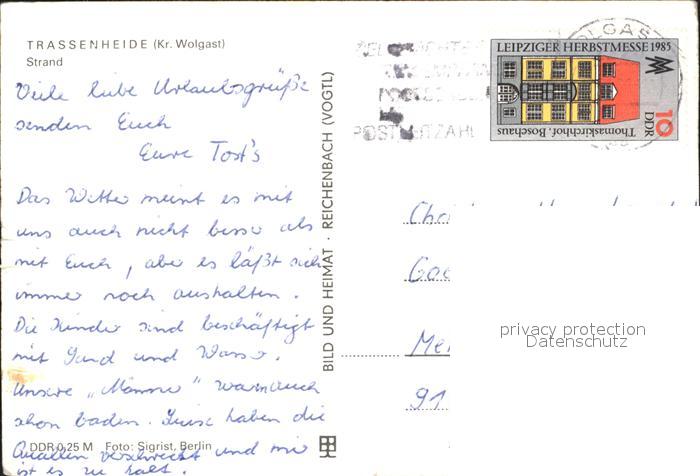 TRASSENHEIDE (Kr. Wolgast)
Strand
Viele liebe Urlaubsgrüße
senden Euch
Eure Tost's
Das Wetter meint es mit
uns auch nicht besser als
mit Euch, aber es läßt sich
immer noch aushalten.
Die Kinder sind beschäftigt
mit Sand und Wasser.
Unsere „Männer" warn auch
schon baden. Luise haben die
Quallen verschreckt und mir
ist es zu kalt.
DDR 0,25 M Foto: Sigrist, Berlin
BILD UND HEIMAT · REICHENBACH (VOGTL)
LEIPZIGER HERBSTMESSE 1985
Thomaskirchhof, Boschaus
10
DDR
OLGAS
POSTLEITZAHL
Chri
Goe
Mei
91
privacy protection
Datenschutz